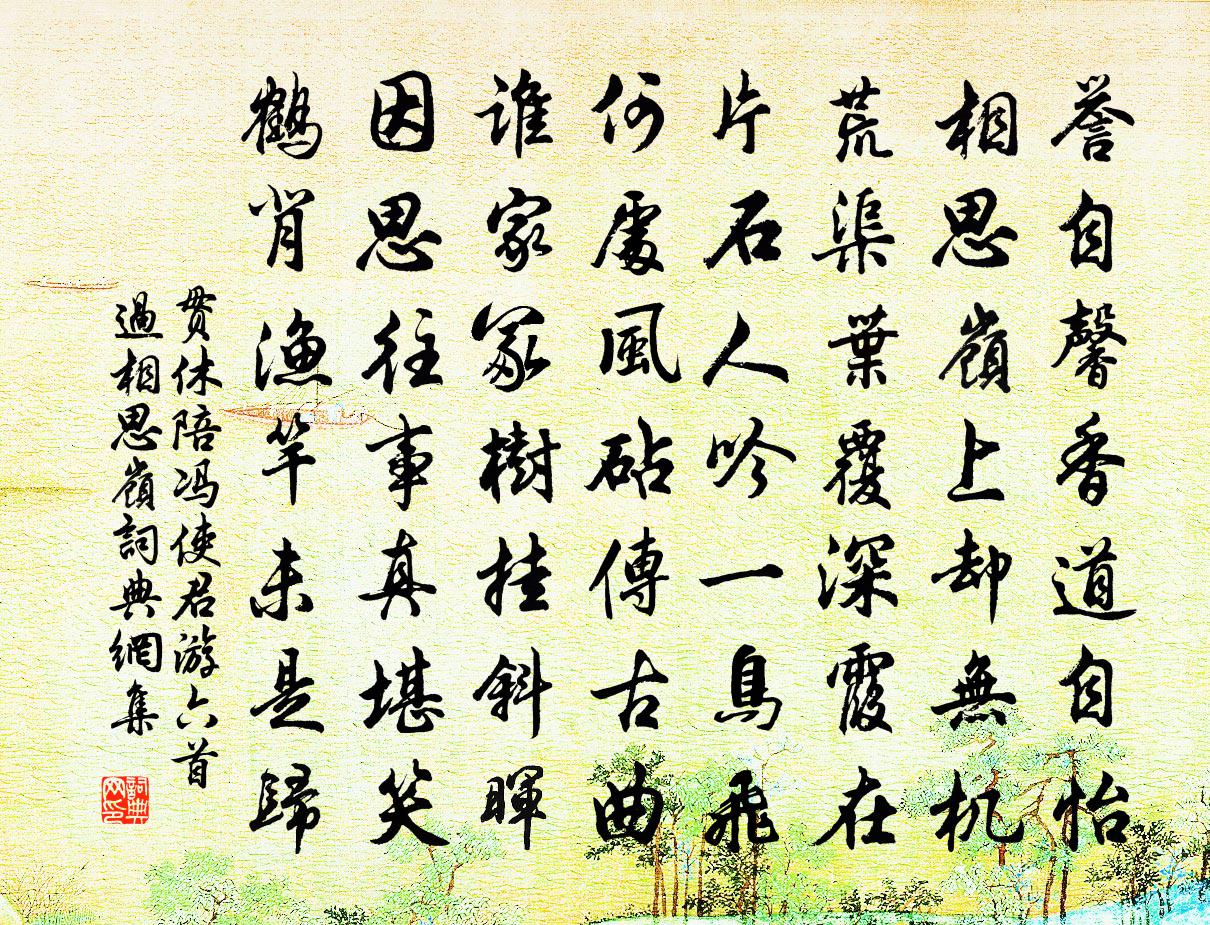 誉自馨香道自怡
相思嶺上却無机
荒渠葉覆深霞在
片石人吟一鳥飛
何處風砧傳古曲
誰家冢樹挂斜暉
因思往事真堪笑
鶴背漁竿未是歸
贯休陪冯使君游六首
過相思嶺詞典網集
詞典网印